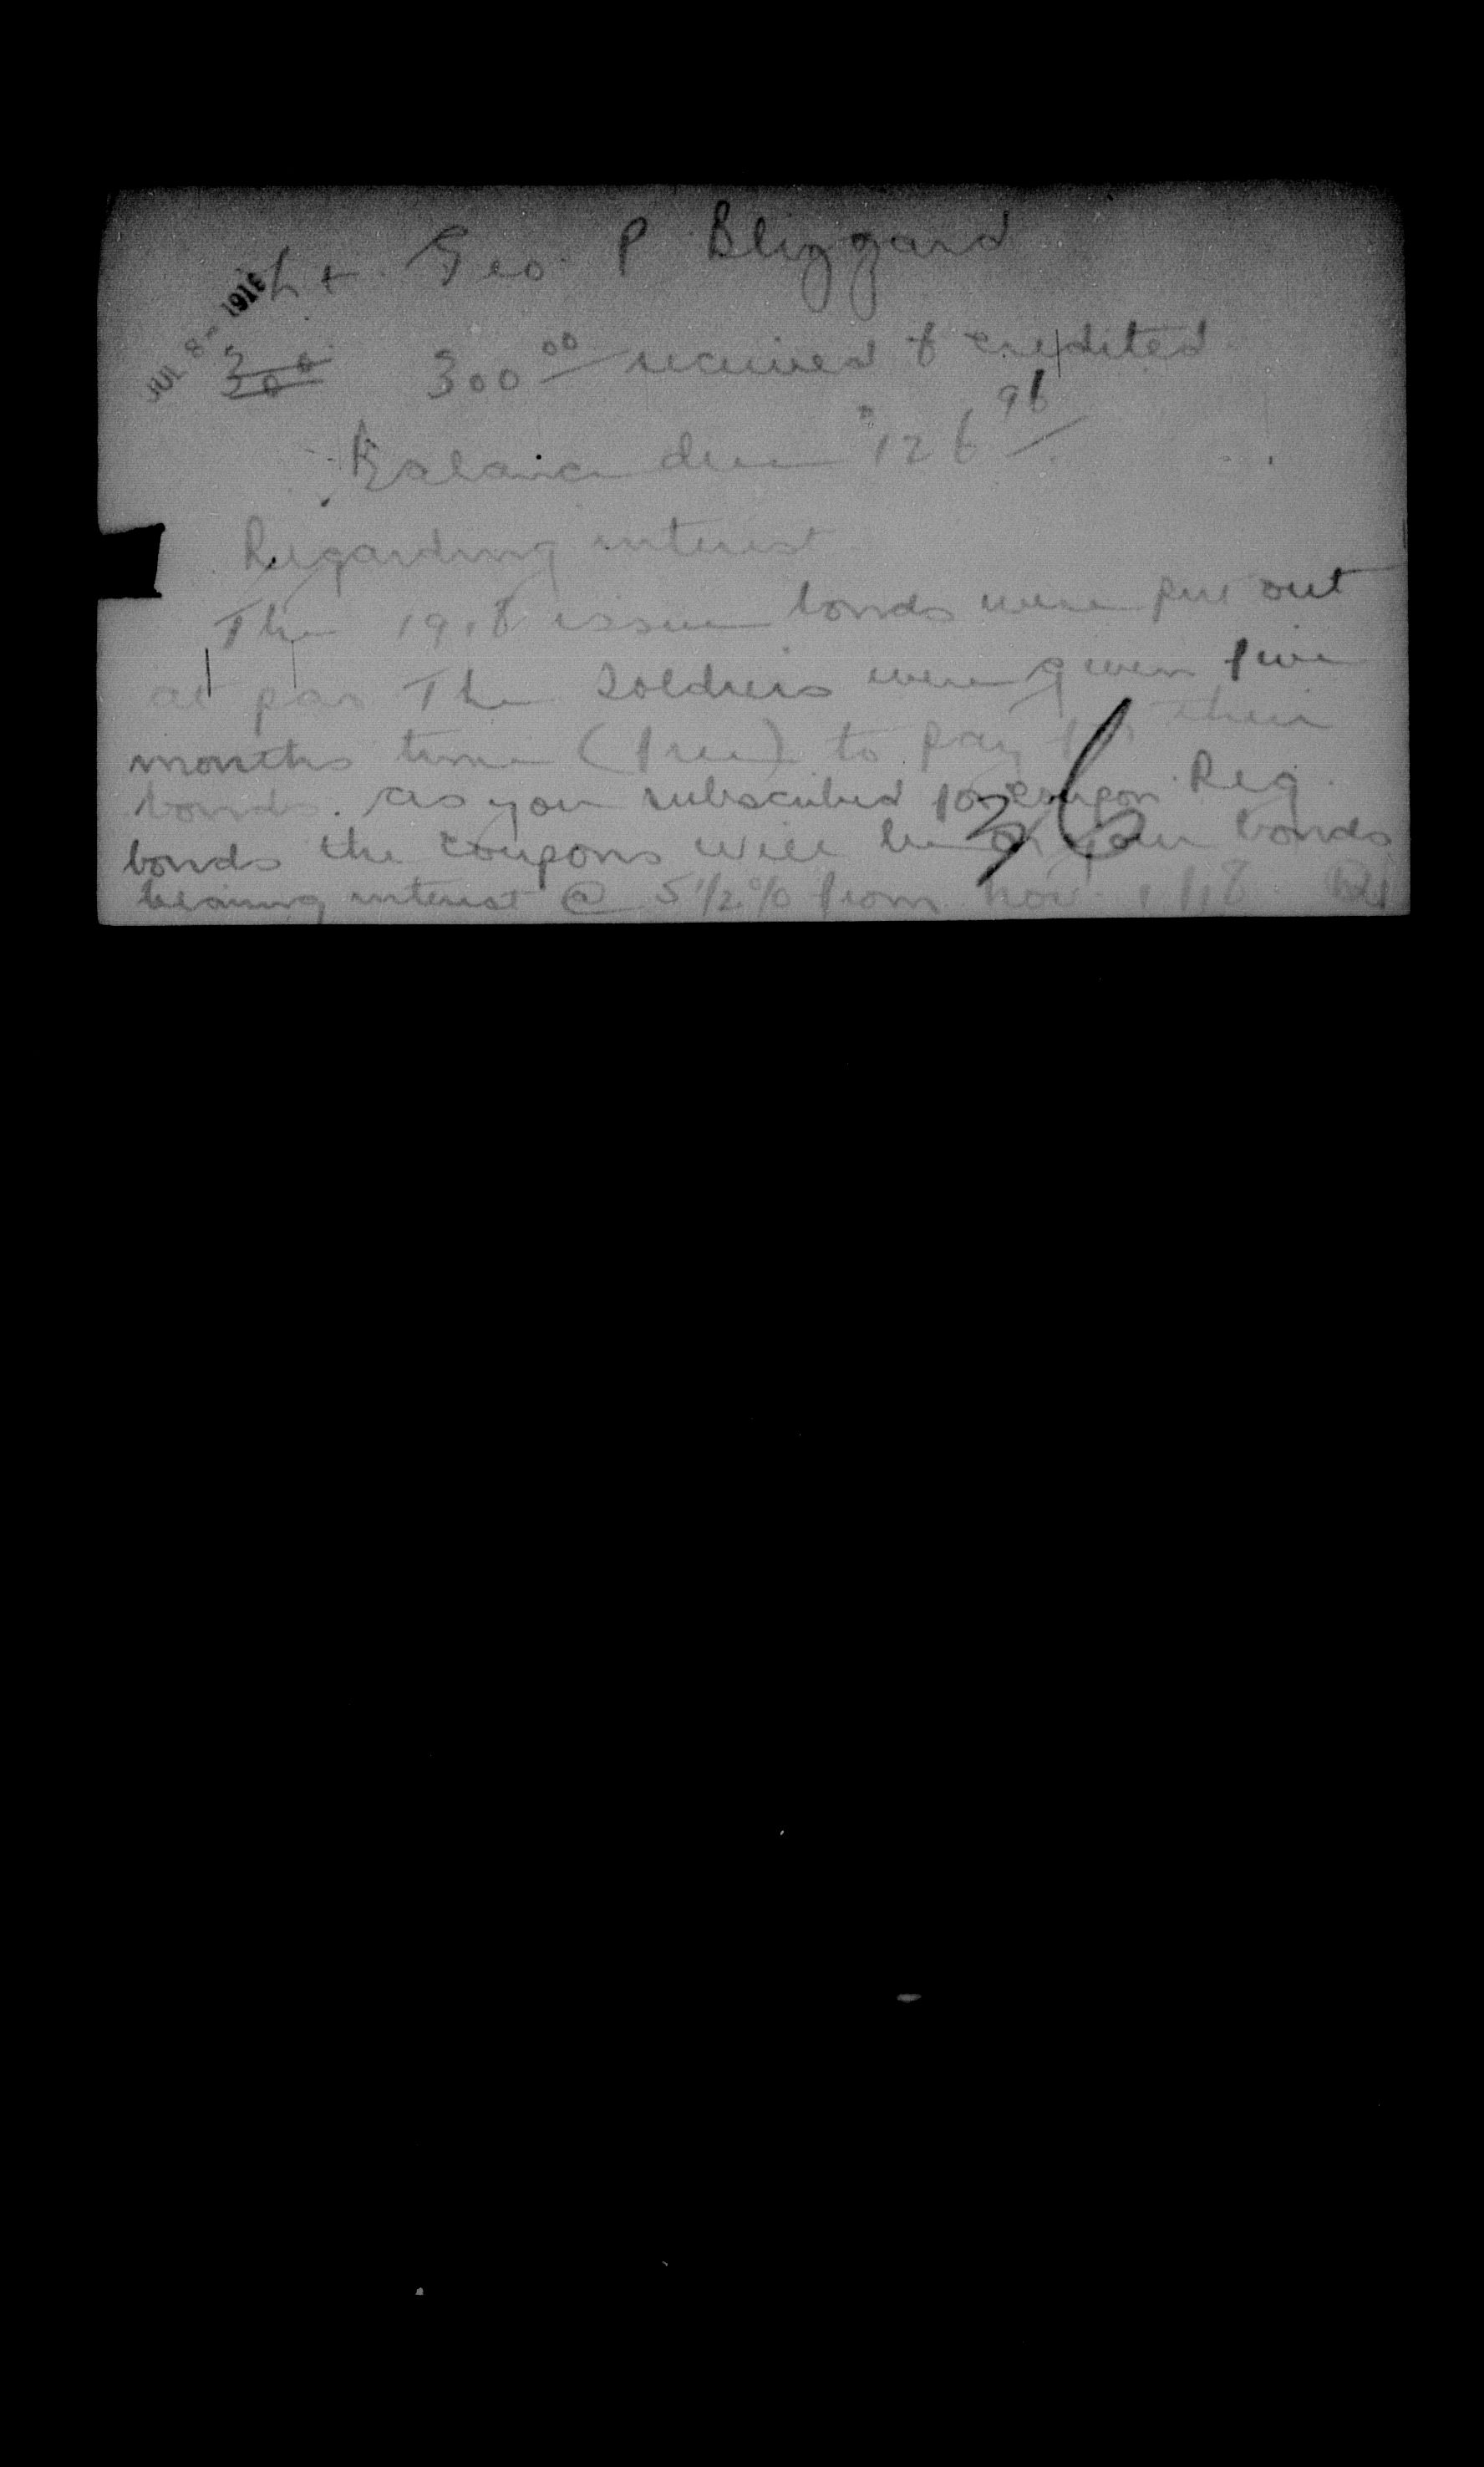 Lt Geo. P Blizzard
JUL 8 - 1918
300 300 00 received & credited
Balance due $126 96
Regarding interest
The 1918 issue bonds were put out
at par The Soldiers were given five
months time (free) to pay for their
bonds. as you subscribed for coupon Reg
bonds the coupons will be on your bonds
bearing interest @ 5 1/2 % from Nov. 1/18
36